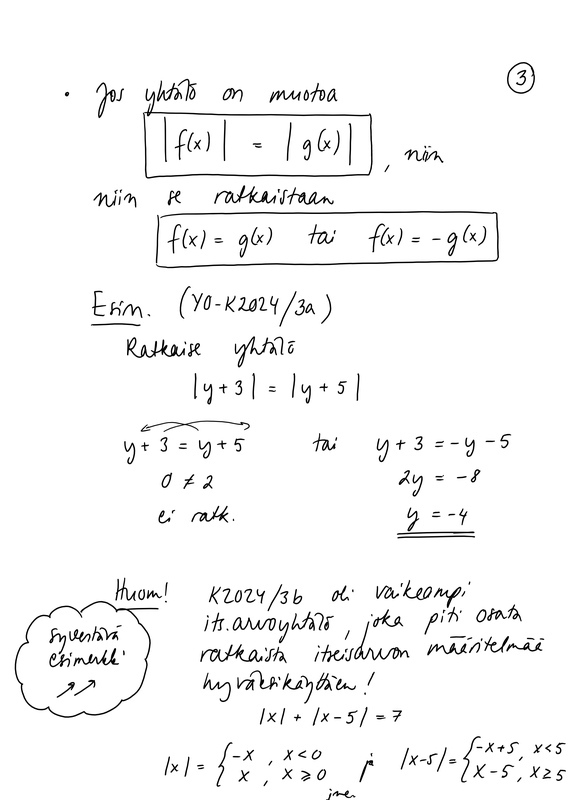 3
• Jos yhtälö on muotoa
|f(x)| = |g(x)| , niin
niin se ratkaistaan
f(x) = g(x) tai f(x) = -g(x)
Esim. (YO-K2024/3a)
Ratkaise yhtälö
|y+3| = |y+5|
y+3 = y+5 tai y+3 = -y-5
0 ≠ 2 2y = -8
ei ratk. y = -4
Huom! K2024/3b oli vaikeampi
its.arvoyhtälö, joka piti osata
ratkaista itseisarvon määritelmää
hyväksikäyttäen!
syventävä
esimerkki
|x| + |x-5| = 7
|x| = { -x , x<0 ja |x-5| = { -x+5, x<5
x , x ≥ 0 x-5, x ≥ 5
jne.